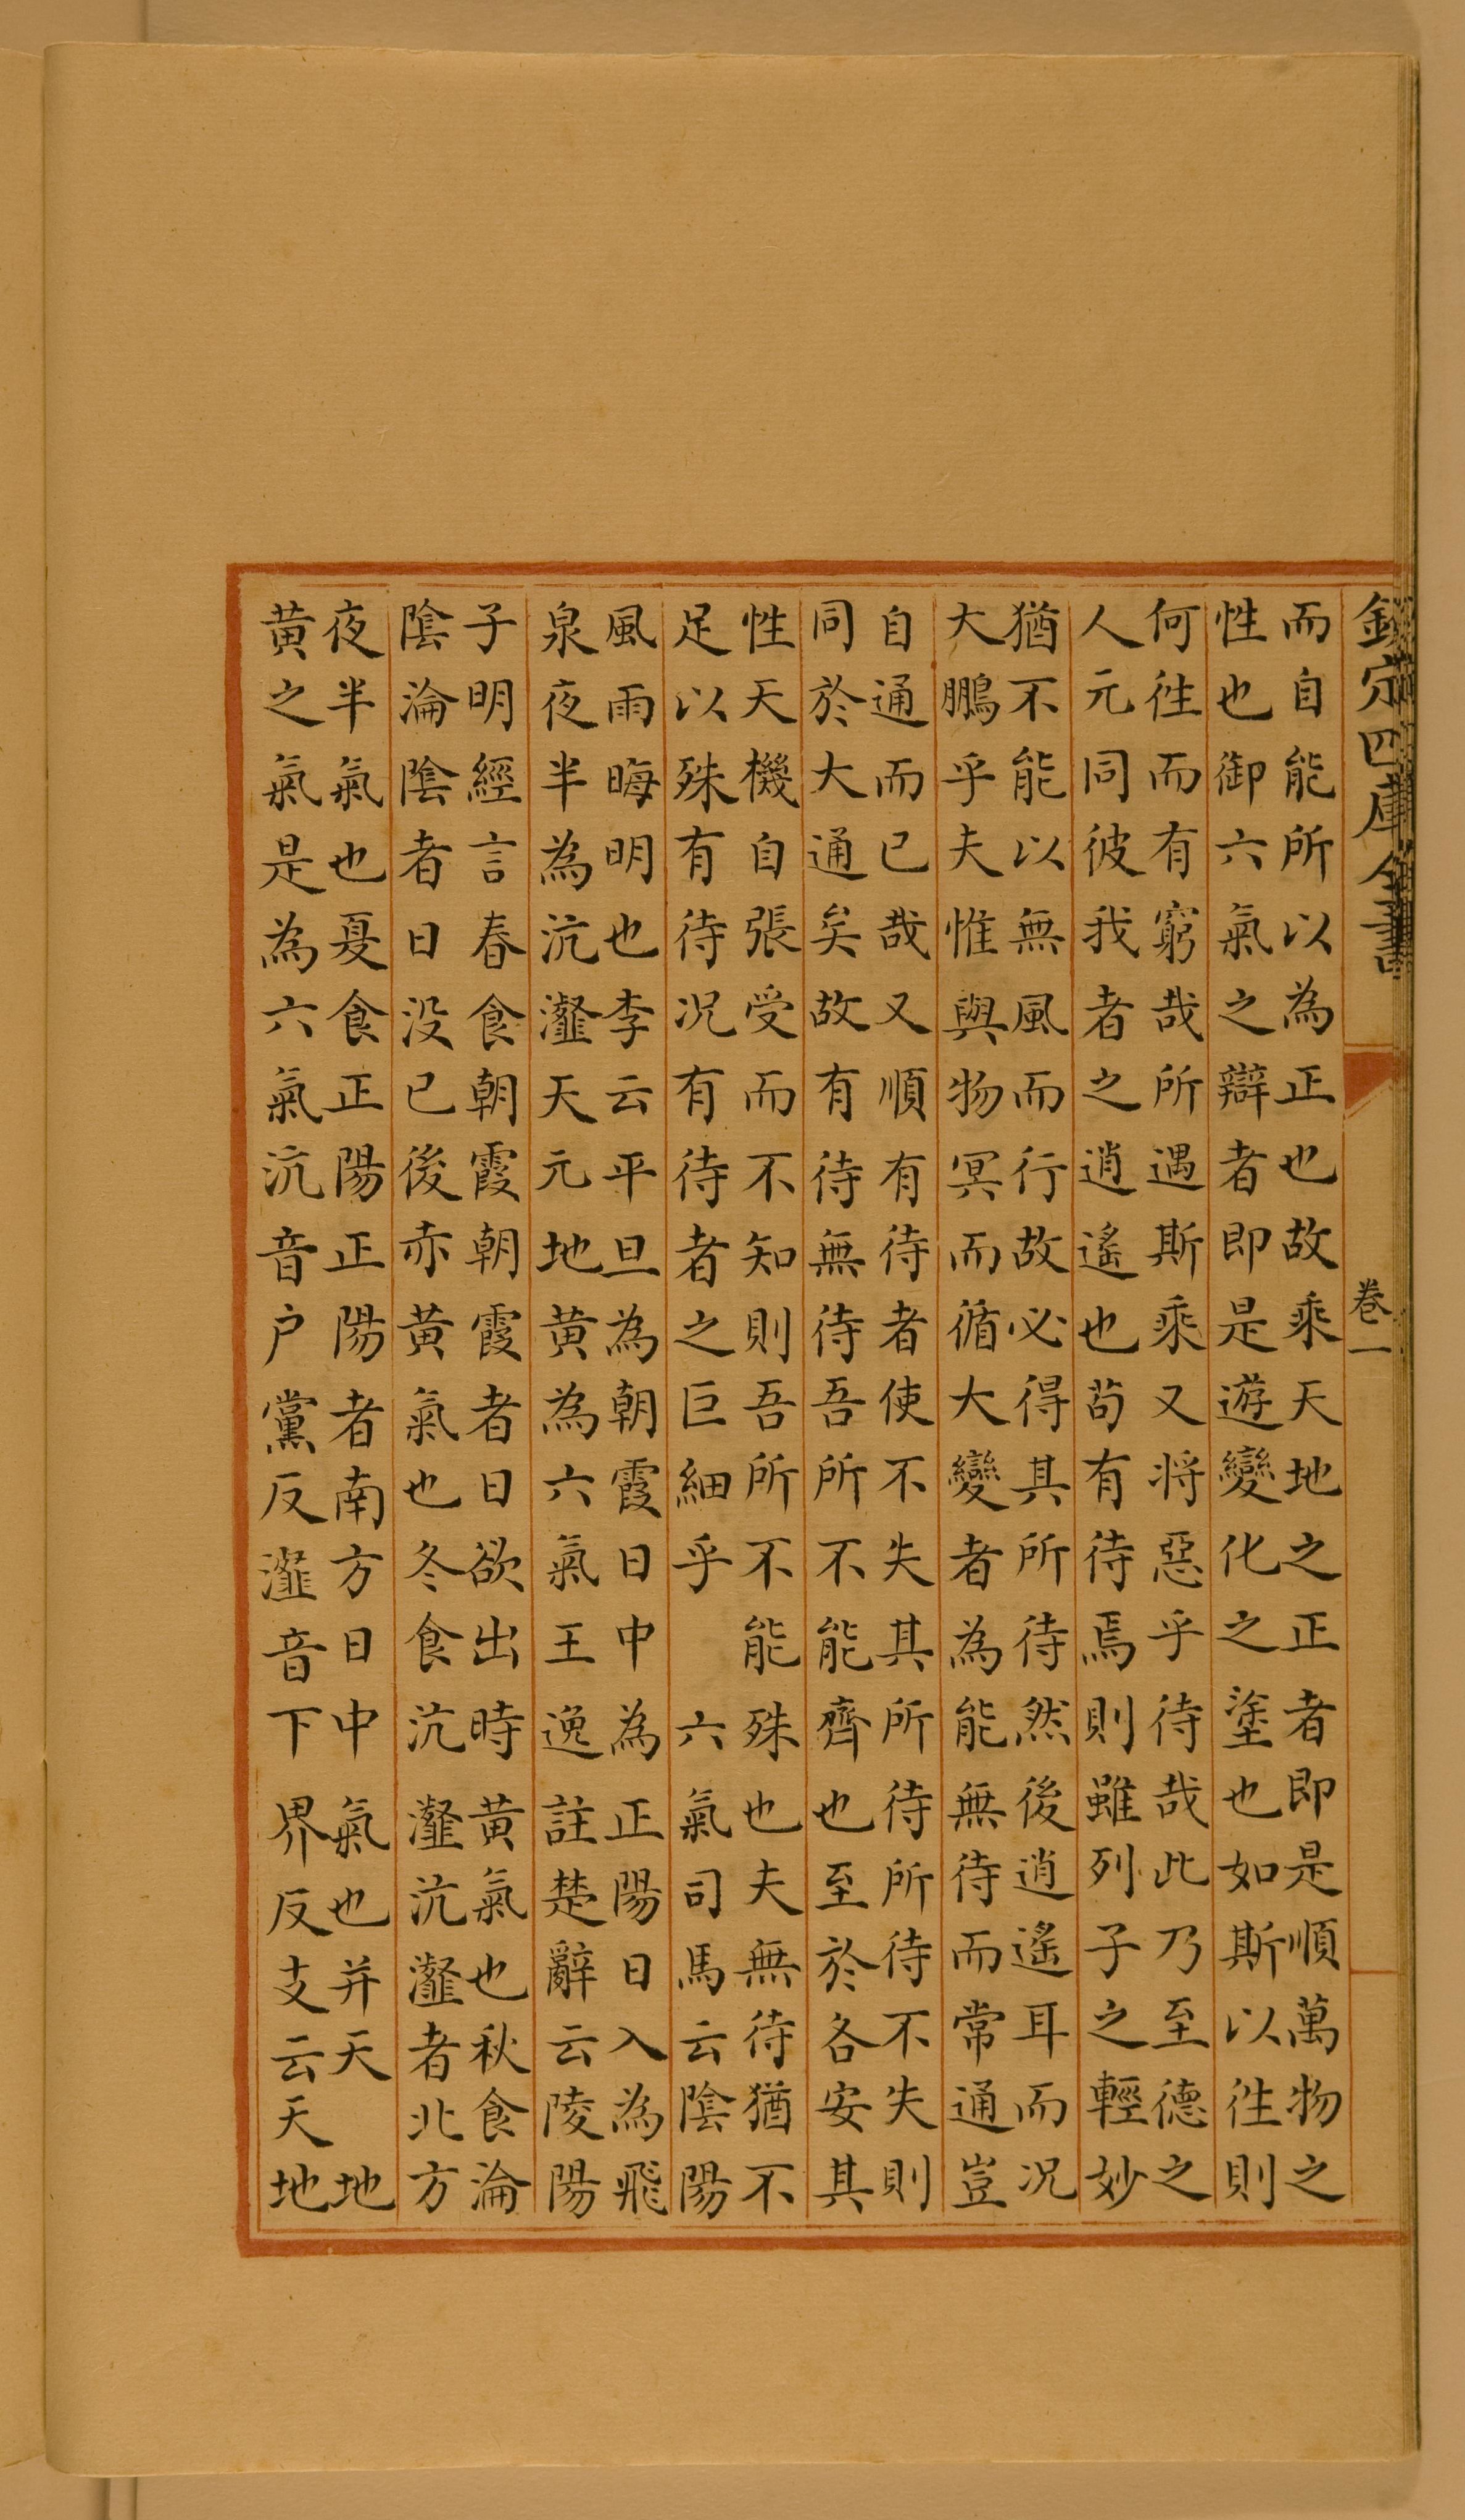 欽定四庫全書
卷一
而自能所以為正也故乘天地之正者即是順萬物之
性也御六氣之辯者即是遊變化之塗也如斯以往則
何往而有窮哉所遇斯乘又將惡乎待哉此乃至德之
人元同彼我者之逍遙也苟有待焉則雖列子之輕妙
猶不能以無風而行故必得其所待然後逍遙耳而况
大鵬乎夫惟與物冥而循大變者為能無待而常通豈
自通而已哉又順有待者使不失其所待所待不失則
同於大通矣故有待無待吾所不能齊也至於各安其
性天機自張受而不知則吾所不能殊也夫無待猶不
足以殊有待况有待者之巨細乎 六氣司馬云陰陽
風雨晦明也李云平旦為朝霞日中為正陽日入為飛
泉夜半為沆瀣天元地黄為六氣王逸註楚辭云陵陽
子明經言春食朝霞朝霞者日欲出時黄氣也秋食淪
陰淪陰者日没已後赤黄氣也冬食沆瀣沆瀣者北方
夜半氣也夏食正陽正陽者南方日中氣也并天地
黄之氣是為六氣沆音户黨反瀣音下界反支云天地